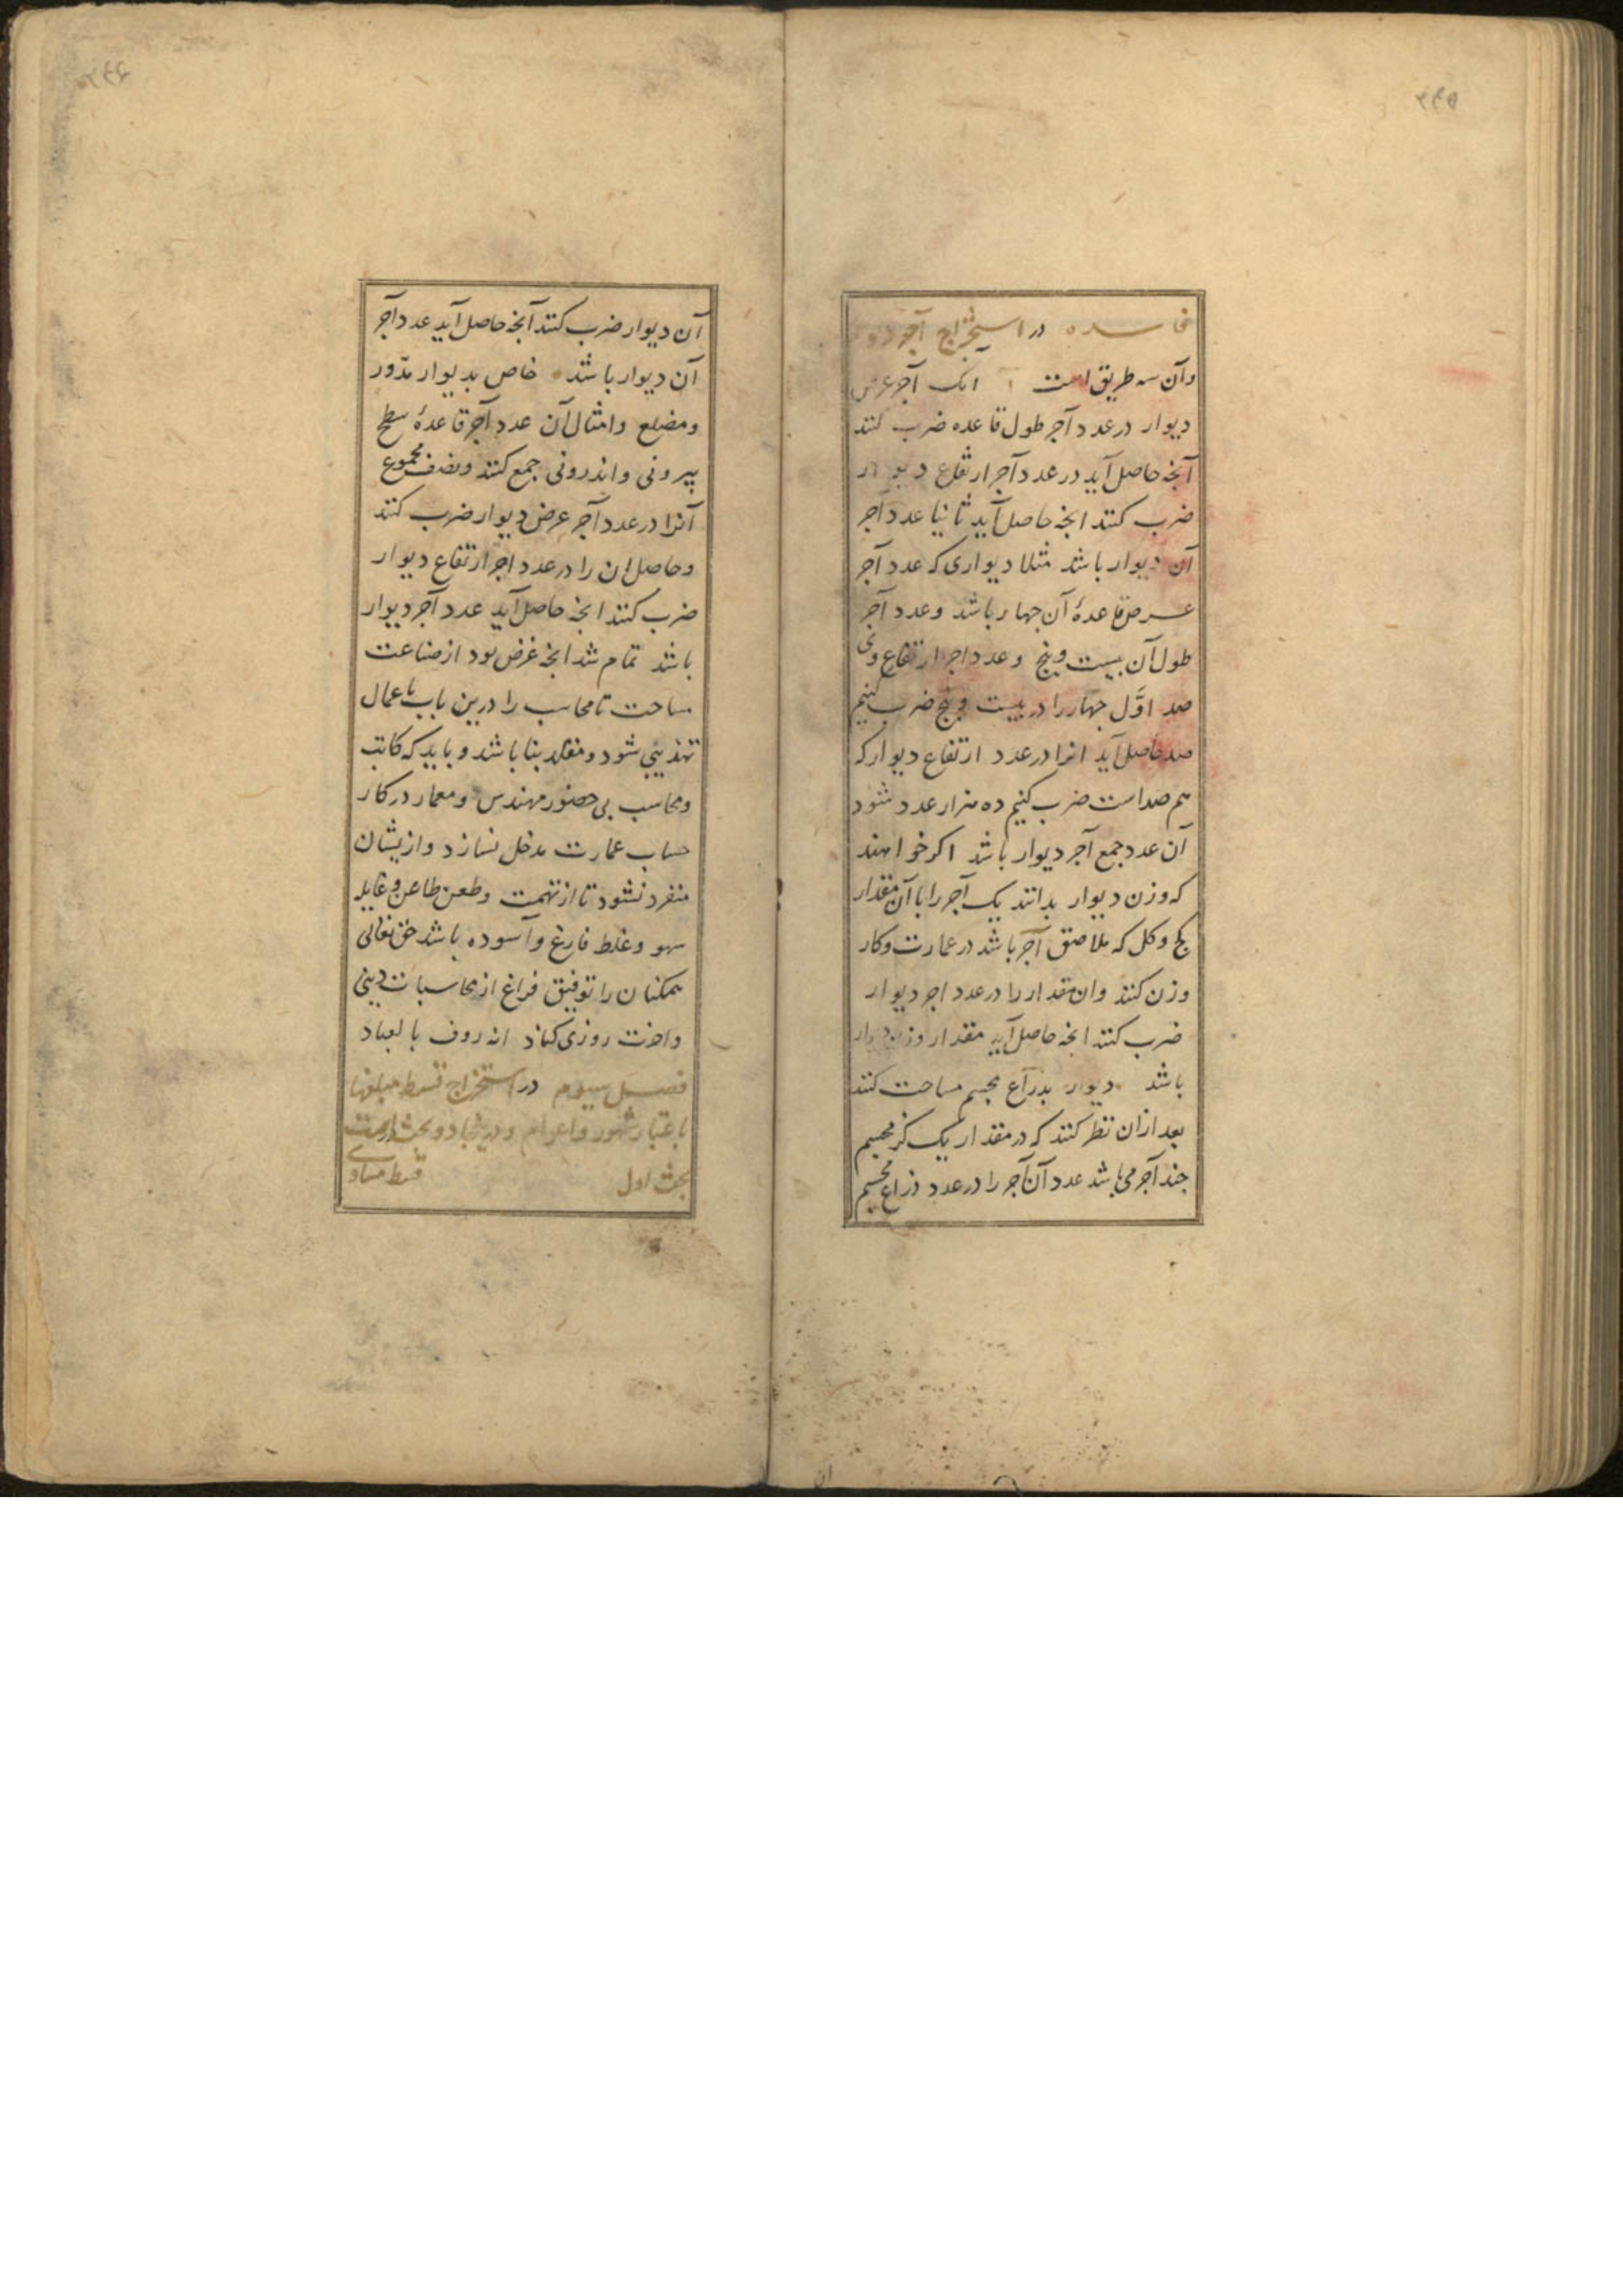 فایده در استخراج آجر دیوار
وآن سه طریق است ا انک آجر عرض
دیوار در عدد آجر طول قاعده ضرب کنند
آنجه حاصل آید در عدد آجر ارتفاع دیوار
ضرب کنند انجه حاصل آید ثانیا عدد آجر
آن دیوار باشد مثلا دیواری که عدد آجر
عرض قاعدهٔ آن جهار باشد وعدد آجر
طول آن بیست وپنج وعدد اجر ارتفاع وی
صد اوّل جهار را در بیست وپنج ضرب کنیم
صد حاصل آید انرا در عدد ارتفاع دیوار که
هم صد است ضرب کنیم ده هزار عدد شود
آن عدد جمع آجر دیوار باشد اکر خواهند
که وزن دیوار بدانند یک آجر را با آن مقدار
کج وکل که ملاصق آجر باشد در عمارت وکار
وزن کنند وان مقدار را در عدد اجر دیوار
ضرب کنند انجه حاصل آید مقدار وزن دیوار
باشد دیوار بذراع مجسم مساحت کنند
بعد ازان نظر کنند که در مقدار یک کز مجسم
جند آجر می باشد عدد آن آجر را در عدد ذراع مجسم
آن دیوار ضرب کنند آنجه حاصل آید عدد آجر
آن دیوار باشد خاص بدیوار مدّور
ومضلع وامثال آن عدد آجر قاعدهٔ سطح
بیرونی واندرونی جمع کنند ونصف مجموع
آنرا در عدد آجر عرض دیوار ضرب کنند
وحاصل ان را در عدد اجر ارتفاع دیوار
ضرب کنند انجه حاصل آید عدد آجر دیوار
باشد تمام شد انجه غرض بود از صناعت
مساحت تا محاسب را درین باب باعمال
تهذیبی شود ومقلد بنا باشد وباید که کاتب
ومحاسب بی حضور مهندس ومعمار در کار
حساب عمارت مدخل نسازد وازیشان
منفرد نشود تا از تهمت وطعن طاعن وغایله
سهو وغلط فارغ وآسوده باشد حق تعالی
همکنان را توفیق فراغ از محاسبات دینی
واخرت روزی کناد انه روف بالعباد
فصل سیوم در استخراج قسط مبلغها
باعتبار شهور واعوام ودرینجا دو بحث است
بحث اول قسط مساوی